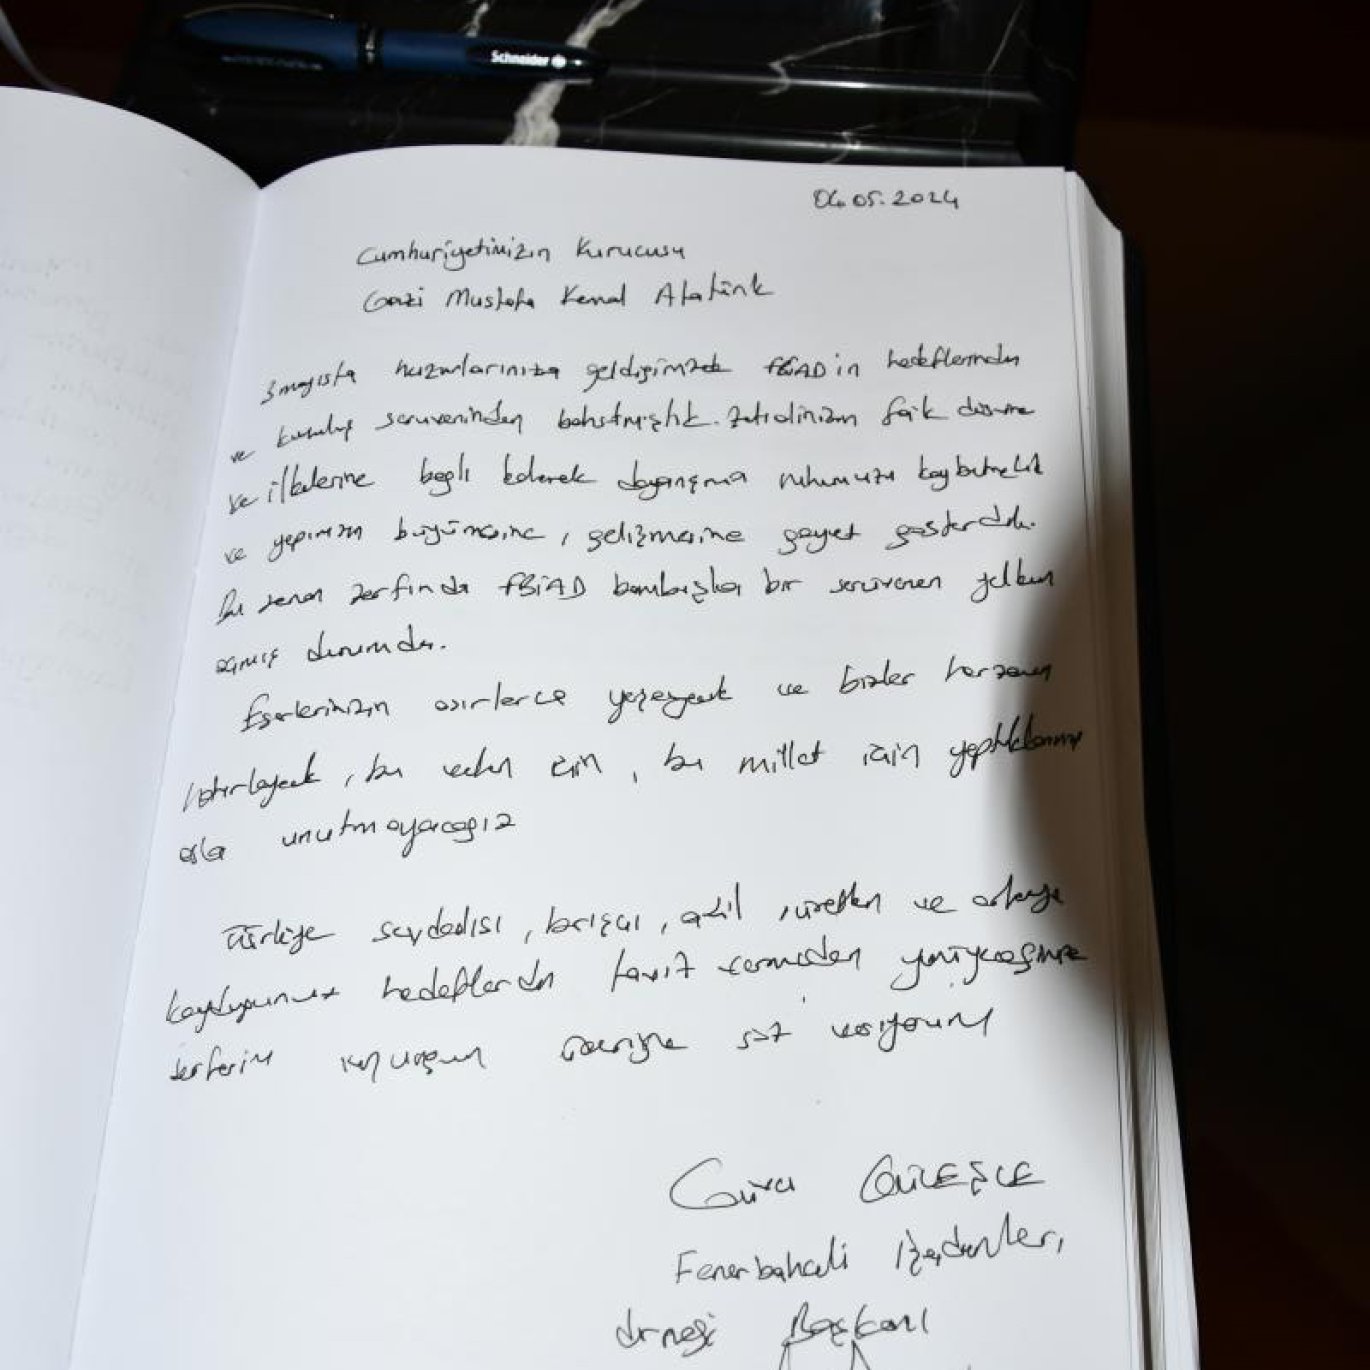 Schneider
06.05.2024
Cumhuriyetimizin Kurucusu
Gazi Mustafa Kemal Atatürk
3 mayısta huzurlarınıza geldiğimizde FBİAD'in hedeflerinden
ve kuruluş seruveninden bahsetmiştik. fark
ve ilkelerine bağlı kalarak dayanışma ruhumuzu kaybetmedik
ve yapımızın büyümesine, gelişmesine gayret gösterdik.
Bu zaman zarfında FBİAD bambaşka bir serüvenen yelken
açmış durumda.
Eserlerinizin asırlarca yaşayacak ve bizler her zaman
hatırlayacak, bu vatan için, bu millet için yaptıklarınızı
asla unutmayacağız
Türkiye sevdalısı, barışçı, adil, üretken ve ortaya
koyduğumuz hedeflerden taviz vermeden yürüyeceğimize
söz veriyorum
GÜLEŞCE
Fenerbahçeli İşadamları,
drneği Başkanı